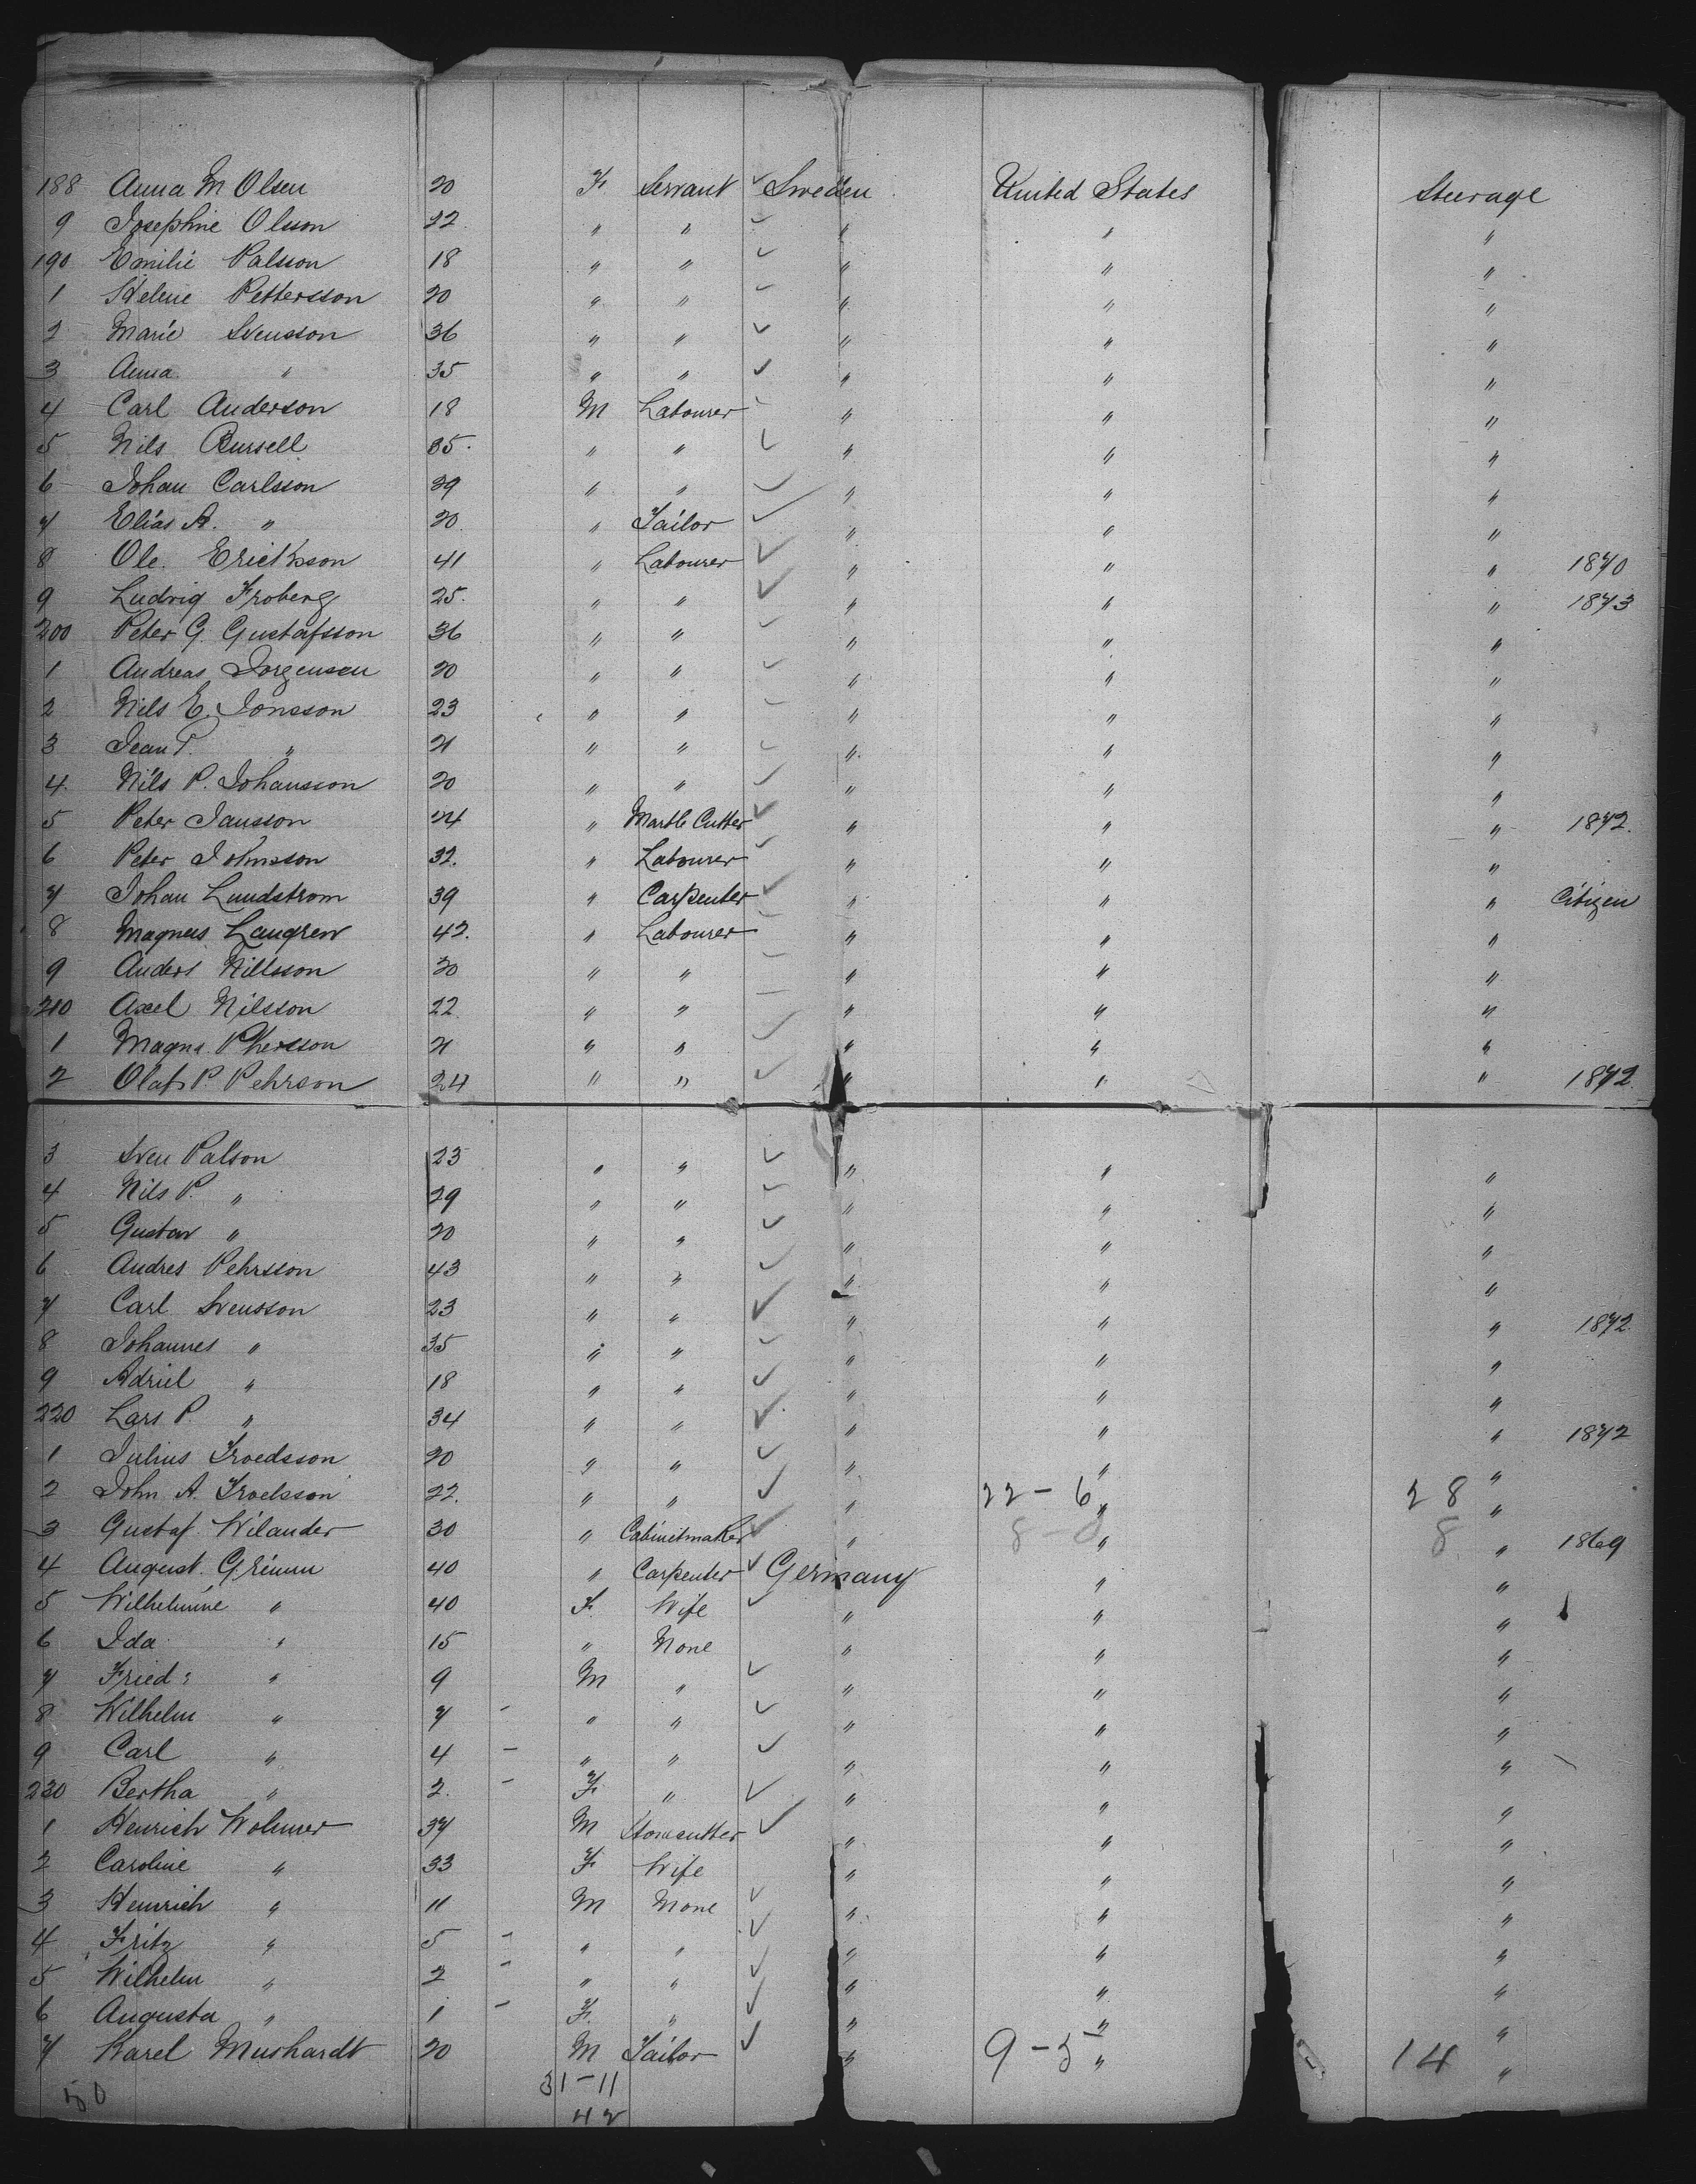 188 Anna M Olsen 20 F. Servant Sweden United States Steerage
9 Josephine Olsson 22 " " " " "
190 Emilie Palsson 18 " " " " "
1 Helene Pettersson 20 " " " " "
2 Marie Svensson 36 " " " " "
3 Anna " 35 " " " " "
4 Carl Anderson 18 M Labourer " " "
5 Nils Bursell 35 " " " " "
6 Johan Carlsson 39 " " " " "
7 Elias A. " 20 " Tailor " " "
8 Ole Erickson 41 " Labourer " " " 1870
9 Ludvig Froberg 25 " " " " " 1873
200 Peter G. Gustafsson 36 " " " " "
1 Andreas Jorgensen 20 " " " " "
2 Nils E. Jonsson 23 " " " " "
3 Jean P. " 21 " " " " "
4 Nils P. Johansson 20 " " " " "
5 Peter Jansson 24 " Marble Cutter " " " 1872
6 Peter Johnsson 32 " Labourer " " "
7 Johan Lundstrom 39 " Carpenter " " " Citizen
8 Magnus Langren 42 " Labourer " " "
9 Anders Nillsson 30 " " " " "
210 Axel Nilsson 22 " " " " "
1 Magns. Phersson 21 " " " " "
2 Olaf P Pehrson 24 " " " " " 1872
3 Sven Palson 23 " " " " "
4 Nils P. " 29 " " " " "
5 Gustav " 20 " " " " "
6 Andres Pehrsson 43 " " " " "
7 Carl Svensson 23 " " " " " 1872
8 Johannes " 35 " " " " "
9 Adriel " 18 " " " " "
220 Lars P. " 34 " " " " " 1872
1 Julius Troedsson 20 " " " " "
2 John A. Troelsson 22 " " " 22-6 " 28 "
3 Gustaf Wilander 30 " Cabinetmaker " 8-0 " 8 " 1869
4 August Grimm 40 " Carpenter Germany " "
5 Wilhelmine " 40 F. Wife " " "
6 Ida " 15 " None " " "
7 Fried: " 9 M " " " "
8 Wilhelm " 7 - " " " " "
9 Carl " 4 - " " " " "
230 Bertha " 2 - F. " " " "
1 Henrich Wolmer 37 M Stonecutter " " "
2 Caroline " 33 F. Wife " " "
3 Heinrich " 11 M None " " "
4 Fritz " 5 - " " " " "
5 Wilhelm " 2 - " " " " "
6 Augusta " 1 - F. " " " "
7 Karel Mushardt 20 M Tailor " 9-5 " 14 "
50 31-11
42